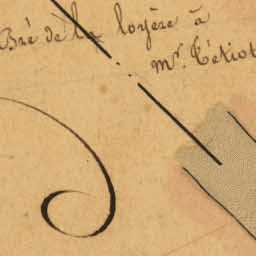 Bré de la loyère à
mr. Tétiot